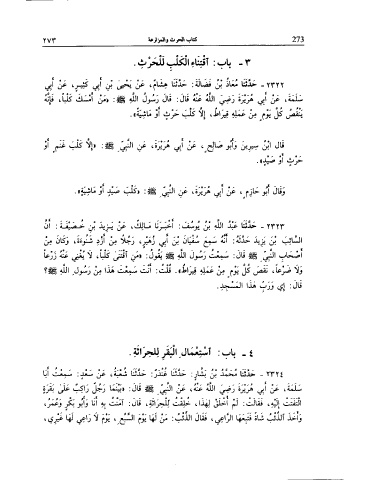 273 كتاب الحرث والمزارعة ٢٧٣
٣ - باب: اقْتِنَاءِ الْكَلْبِ لِلْحَرْثِ.
٢٣٢٢ - حَدَّثَنَا مُعَاذُ بْنُ فَضَالَةَ: حَدَّثَنَا هِشَامٌ، عَنْ يَحْيَى بْنِ أَبِي كَثِيرٍ، عَنْ أَبِي
سَلَمَةَ، عَنْ أَبِي هُرَيْرَةَ رَضِيَ اللَّهُ عَنْهُ قَالَ: قَالَ رَسُولُ اللَّهِ ﷺ: «مَنْ أَمْسَكَ كَلْباً، فَإِنَّهُ
يَنْقُصُ كُلَّ يَوْمٍ مِنْ عَمَلِهِ قِيرَاطٌ، إِلَّا كَلْبَ حَرْثٍ أَوْ مَاشِيَةٍ».
قَالَ ابْنُ سِيرِينَ وَأَبُو صَالِحٍ، عَنْ أَبِي هُرَيْرَةَ، عَنِ النَّبِيِّ ﷺ: «إِلَّا كَلْبَ غَنَمٍ أَوْ
حَرْثٍ أَوْ صَيْدٍ».
وَقَالَ أَبُو حَازِمٍ، عَنْ أَبِي هُرَيْرَةَ، عَنِ النَّبِيِّ ﷺ: «كَلْبَ صَيْدٍ أَوْ مَاشِيَةٍ».
٢٣٢٣ - حَدَّثَنَا عَبْدُ اللَّهِ بْنُ يُوسُفَ: أَخْبَرَنَا مَالِكٌ، عَنْ يَزِيدَ بْنِ خُصَيْفَةَ: أَنَّ
السَّائِبَ بْنَ يَزِيدَ حَدَّثَهُ: أَنَّهُ سَمِعَ سُفْيَانَ بْنَ أَبِي زُهَيْرٍ، رَجُلاً مِنْ أَزْدِ شَنُوءَةَ، وَكَانَ مِنْ
أَصْحَابِ النَّبِيِّ ﷺ قَالَ: سَمِعْتُ رَسُولَ اللَّهِ ﷺ يَقُولُ: «مَنِ اقْتَنَى كَلْباً، لَا يُغْنِي عَنْهُ زَرْعاً
وَلَا ضَرْعاً، نَقَصَ كُلَّ يَوْمٍ مِنْ عَمَلِهِ قِيرَاطٌ». قُلْتُ: أَنْتَ سَمِعْتَ هَذَا مِنْ رَسُولِ اللَّهِ ﷺ؟
قَالَ: إِي وَرَبِّ هَذَا الْمَسْجِدِ.
٤ - باب: اسْتِعْمَالِ الْبَقَرِ لِلْحِرَاثَةِ.
٢٣٢٤ - حَدَّثَنَا مُحَمَّدُ بْنُ بَشَّارٍ: حَدَّثَنَا غُنْدَرٌ: حَدَّثَنَا شُعْبَةُ، عَنْ سَعْدٍ: سَمِعْتُ أَبَا
سَلَمَةَ، عَنْ أَبِي هُرَيْرَةَ رَضِيَ اللَّهُ عَنْهُ، عَنِ النَّبِيِّ ﷺ قَالَ: «بَيْنَمَا رَجُلٌ رَاكِبٌ عَلَى بَقَرَةٍ
الْتَفَتَتْ إِلَيْهِ، فَقَالَتْ: لَمْ أُخْلَقْ لِهَذَا، خُلِقْتُ لِلْحِرَاثَةِ، قَالَ: آمَنْتُ بِهِ أَنَا وَأَبُو بَكْرٍ وَعُمَرُ،
وَأَخَذَ الذِّئْبُ شَاةً فَتَبِعَهَا الرَّاعِي، فَقَالَ الذِّئْبُ: مَنْ لَهَا يَوْمَ السَّبُعِ، يَوْمَ لَا رَاعِيَ لَهَا غَيْرِي،